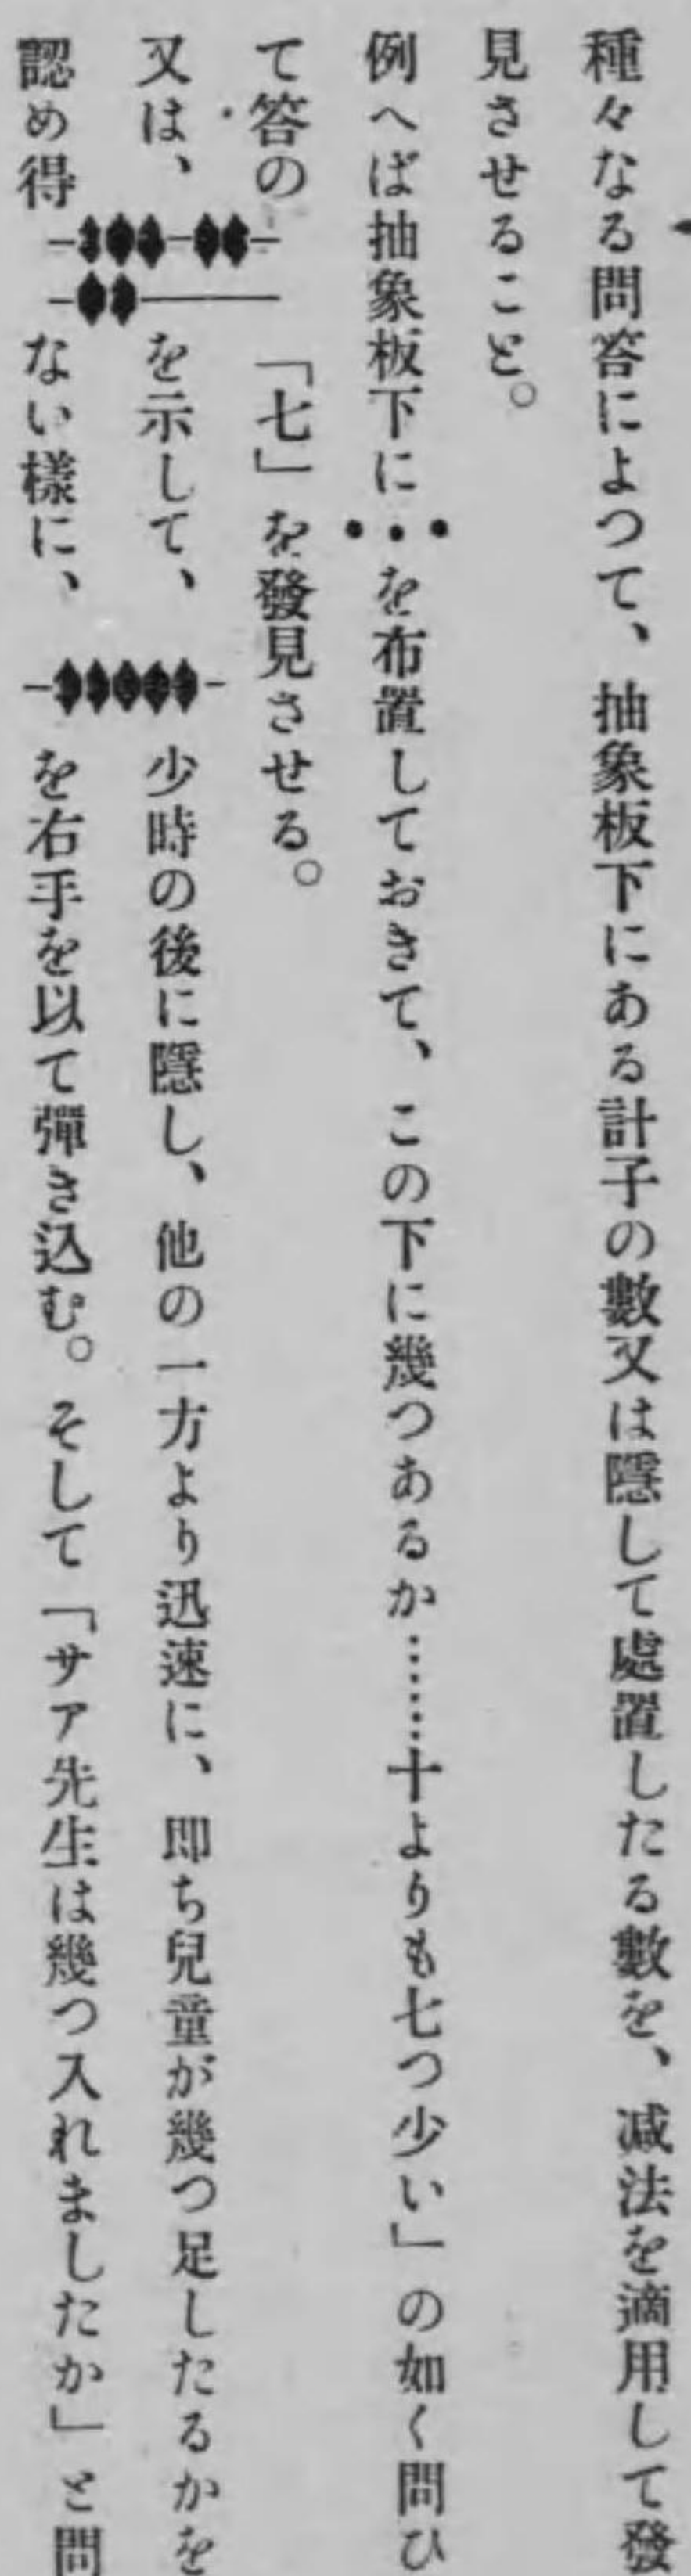 種々なる問答によつて、抽象板下にある計子の數又は隱して處置したる數を、減法を適用して發
見させること。
例へば抽象板下に•••を布置しておきて、この下に幾つあるか……十よりも七つ少い」の如く問ひ
て答の「七」を發見させる。
又は、を示して、少時の後に隱し、他の一方より迅速に、即ち兒童が幾つ足したるかを
認め得ない樣に、を右手を以て彈き込む。そして「サア先生は幾つ入れましたか」と問